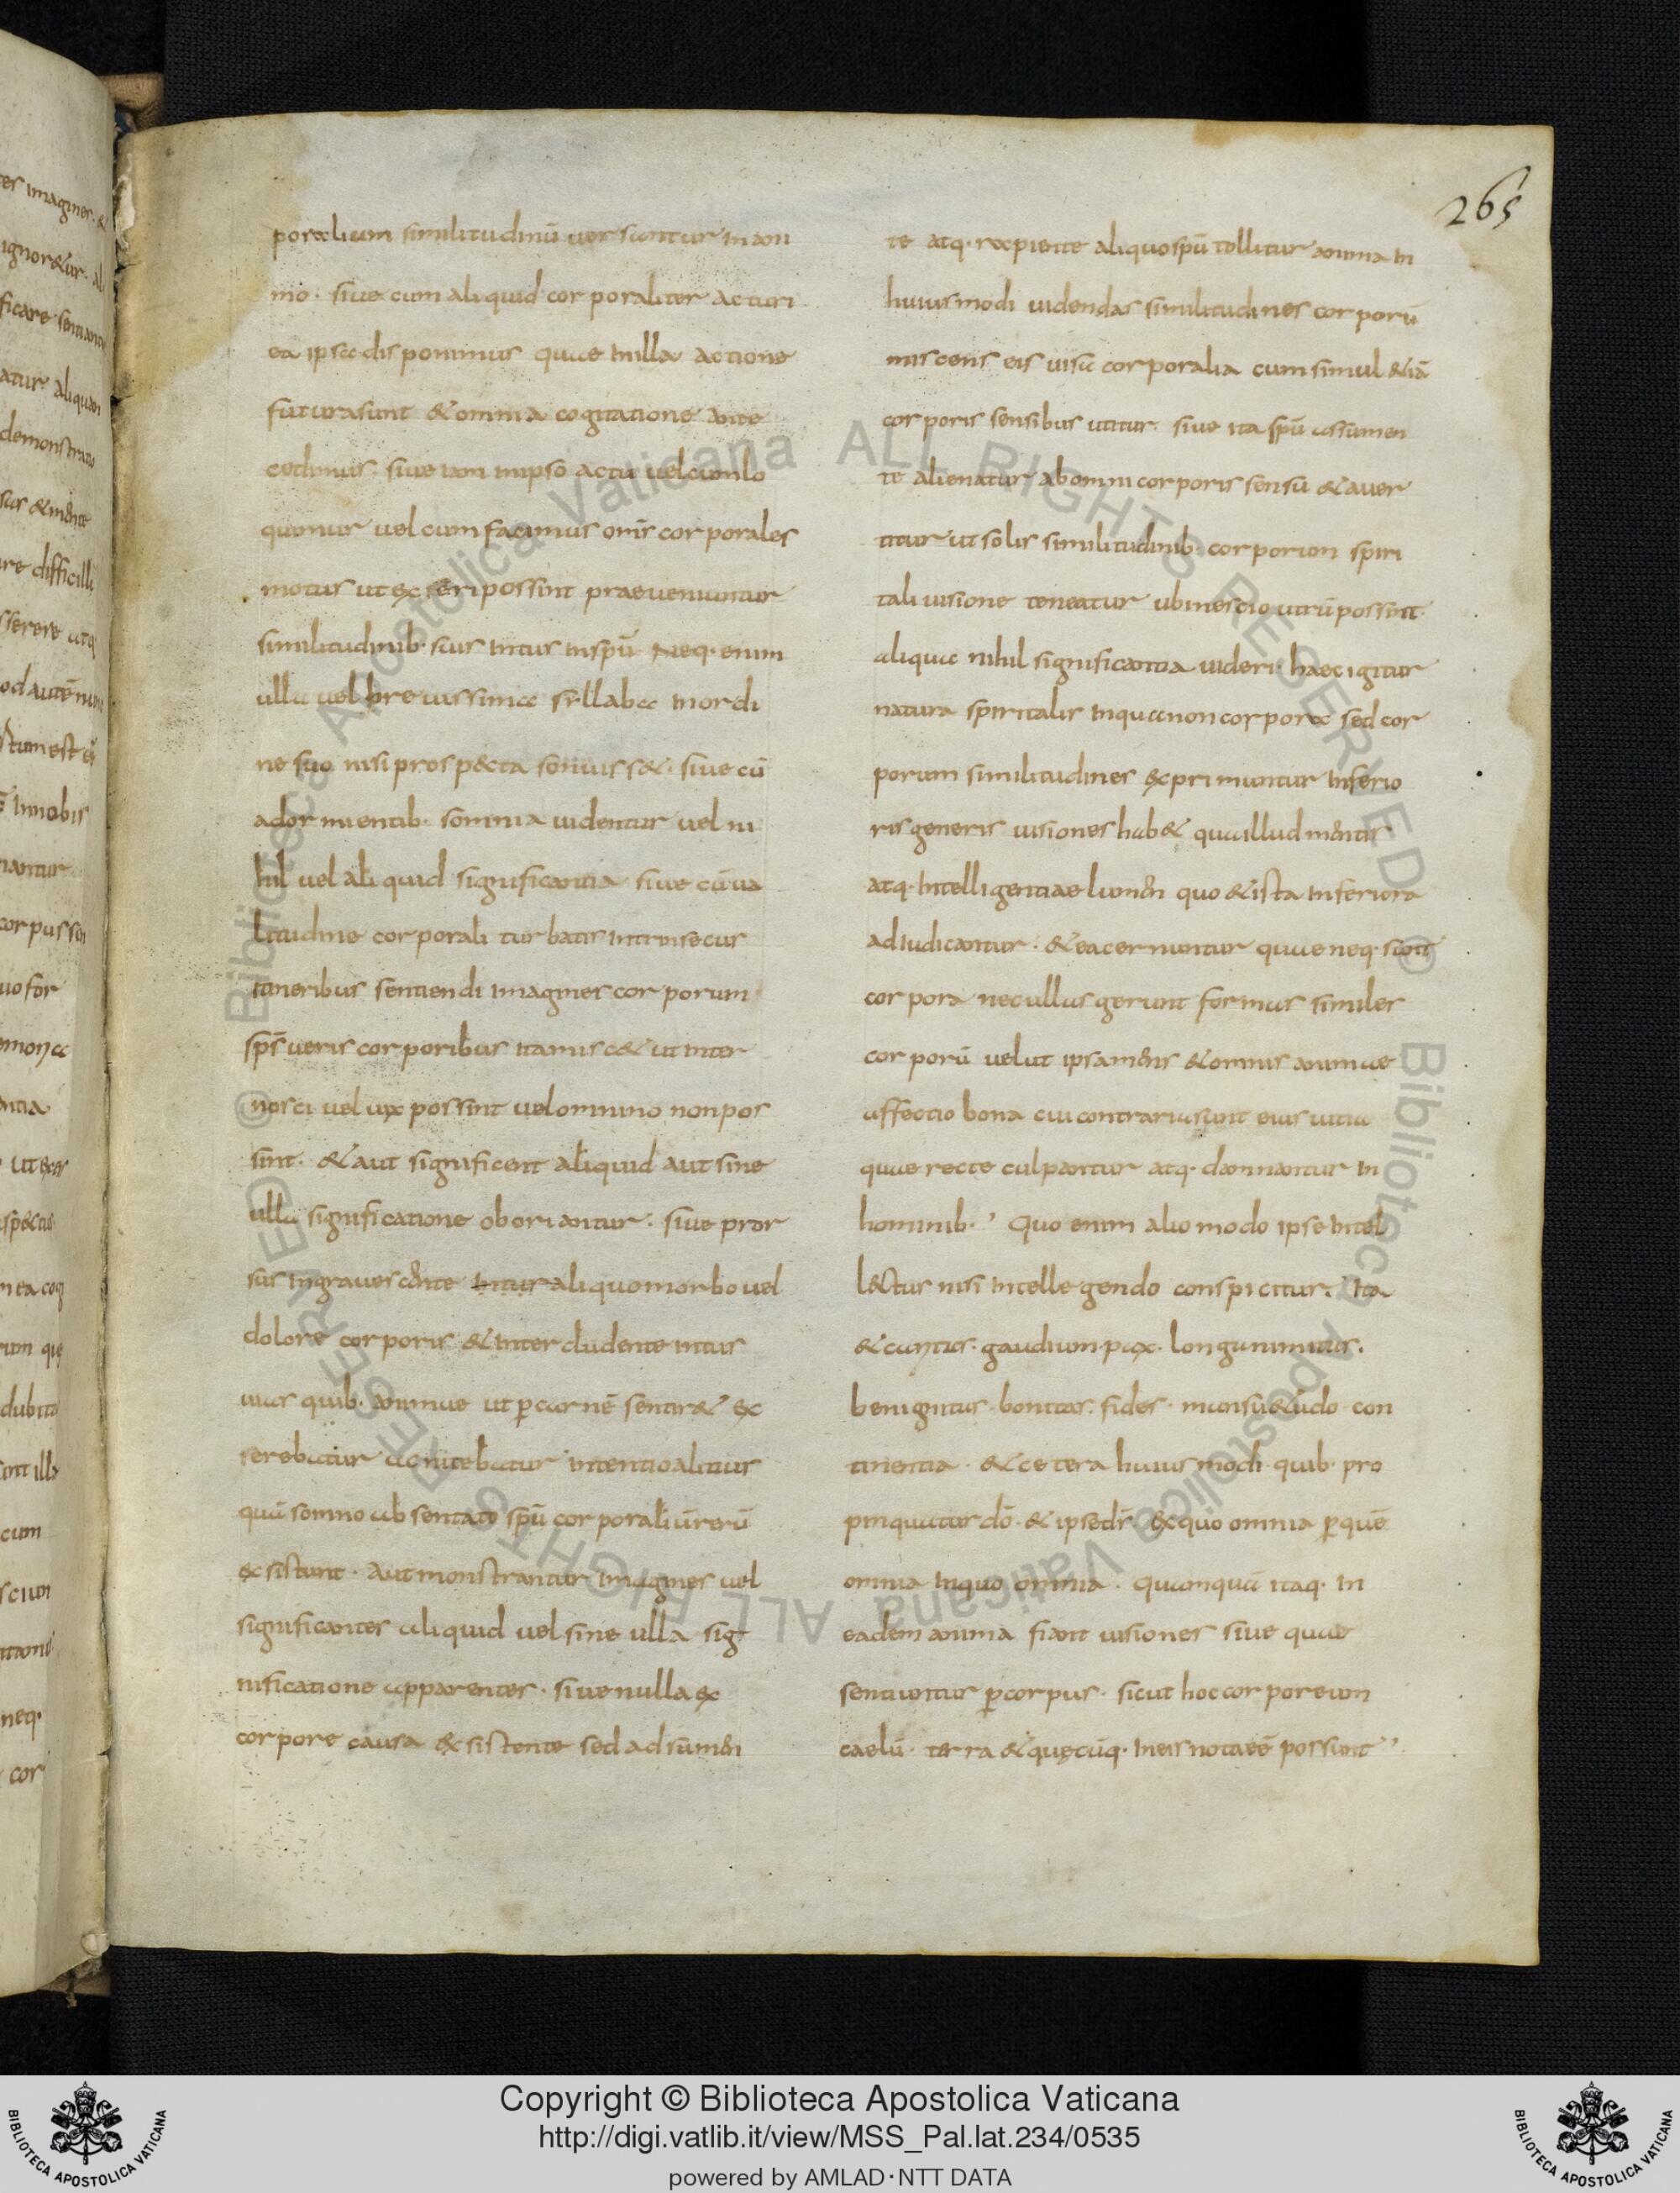 265
poralium similitudinū uersantur in ani
mo · siue cum aliquid corporaliter acturi
ea ipsa disponimus quae in illa actione
futura sunt & omnia cogitatione ante
cedimus · siue iam in ipso actu uel cum lo
quimur uel cum facimus oms̄ corporales
motus ut exseri possint praeueniuntur
similitudinib · suis intus in spū Neq · enim
ulla uel breuissima syllaba in ordi
ne suo nisi prospecta sonuiss& · siue cū
adormientib · somnia uidentur uel ni
hil uel aliquid significantia siue cū ua
litudine corporali turbatis intrinsecus
itineribus sentiendi imagines corporum
sps̄ ueris corporibus ita misc& ut inter
nosci uel uix possint uel omnino non pos
sint · & aut significent aliquid aut sine
ulla significatione oboriantur · siue pror
sus ingrauescente intus aliquo morbo uel
dolore corporis & intercludente intus
uias quib · animae ut p carnē sentir& ex
serebatur ac nitebatur intentio alitius
quā somno absentato spū corporaliū rerū
exsistunt · Aut monstrantur imagines uel
significantes aliquid uel sine ulla sig
nificatione apparentes · siue nulla ex
corpore causa exsistente sed adsumen
te atq · rapiente aliquo spū tollitur anima in
huiusmodi uidendas similitudines corporū
miscens eis uisa corporalia cum simul & iā
corporis sensibus utitur · siue ita spū assumen
te alienatur ab omni corporis sensū & auer
titur ut solis similitudinib · corporum spiri
tali uisione teneatur ubi nescio utrū possint
aliqua nihil significantia uideri · haec igitur
natura spiritalis in qua non corpora sed cor
porum similitudines exprimuntur inferio
ris generis uisiones hab& quā illud mentis
atq · intelligentiae lumen quo & ista inferiora
adiudicantur · & ea cernuntur quae neq · sunt
corpora nec ullas gerunt formas similes
corporū uelut ipsa mens & omnis animae
affectio bona cui contraria sunt eius uitia
quae recte culpantur atq · damnantur in
hominib · Quo enim alio modo ipse intel
lectus nisi intellegendo conspicitur · Ita
& caritas · gaudium · pax · longanimitas ·
benignitas · bonitas · fides · mansu&udo · con
tinentia · & cetera huiusmodi · quib · pro
pinquatur dō · & ipse ds̄ · ex quo omnia p quē
omnia in quo omnia · Quamquā itaq · in
eadem anima fiant uisiones siue quae
sentiuntur p corpus · sicut hoc corporeum
caelū · terra & quęcūq · in eis nota eē possunt
Copyright © Biblioteca Apostolica Vaticana
http://digi.vatlib.it/view/MSS_Pal.lat.234/0535
powered by AMLAD·NTT DATA